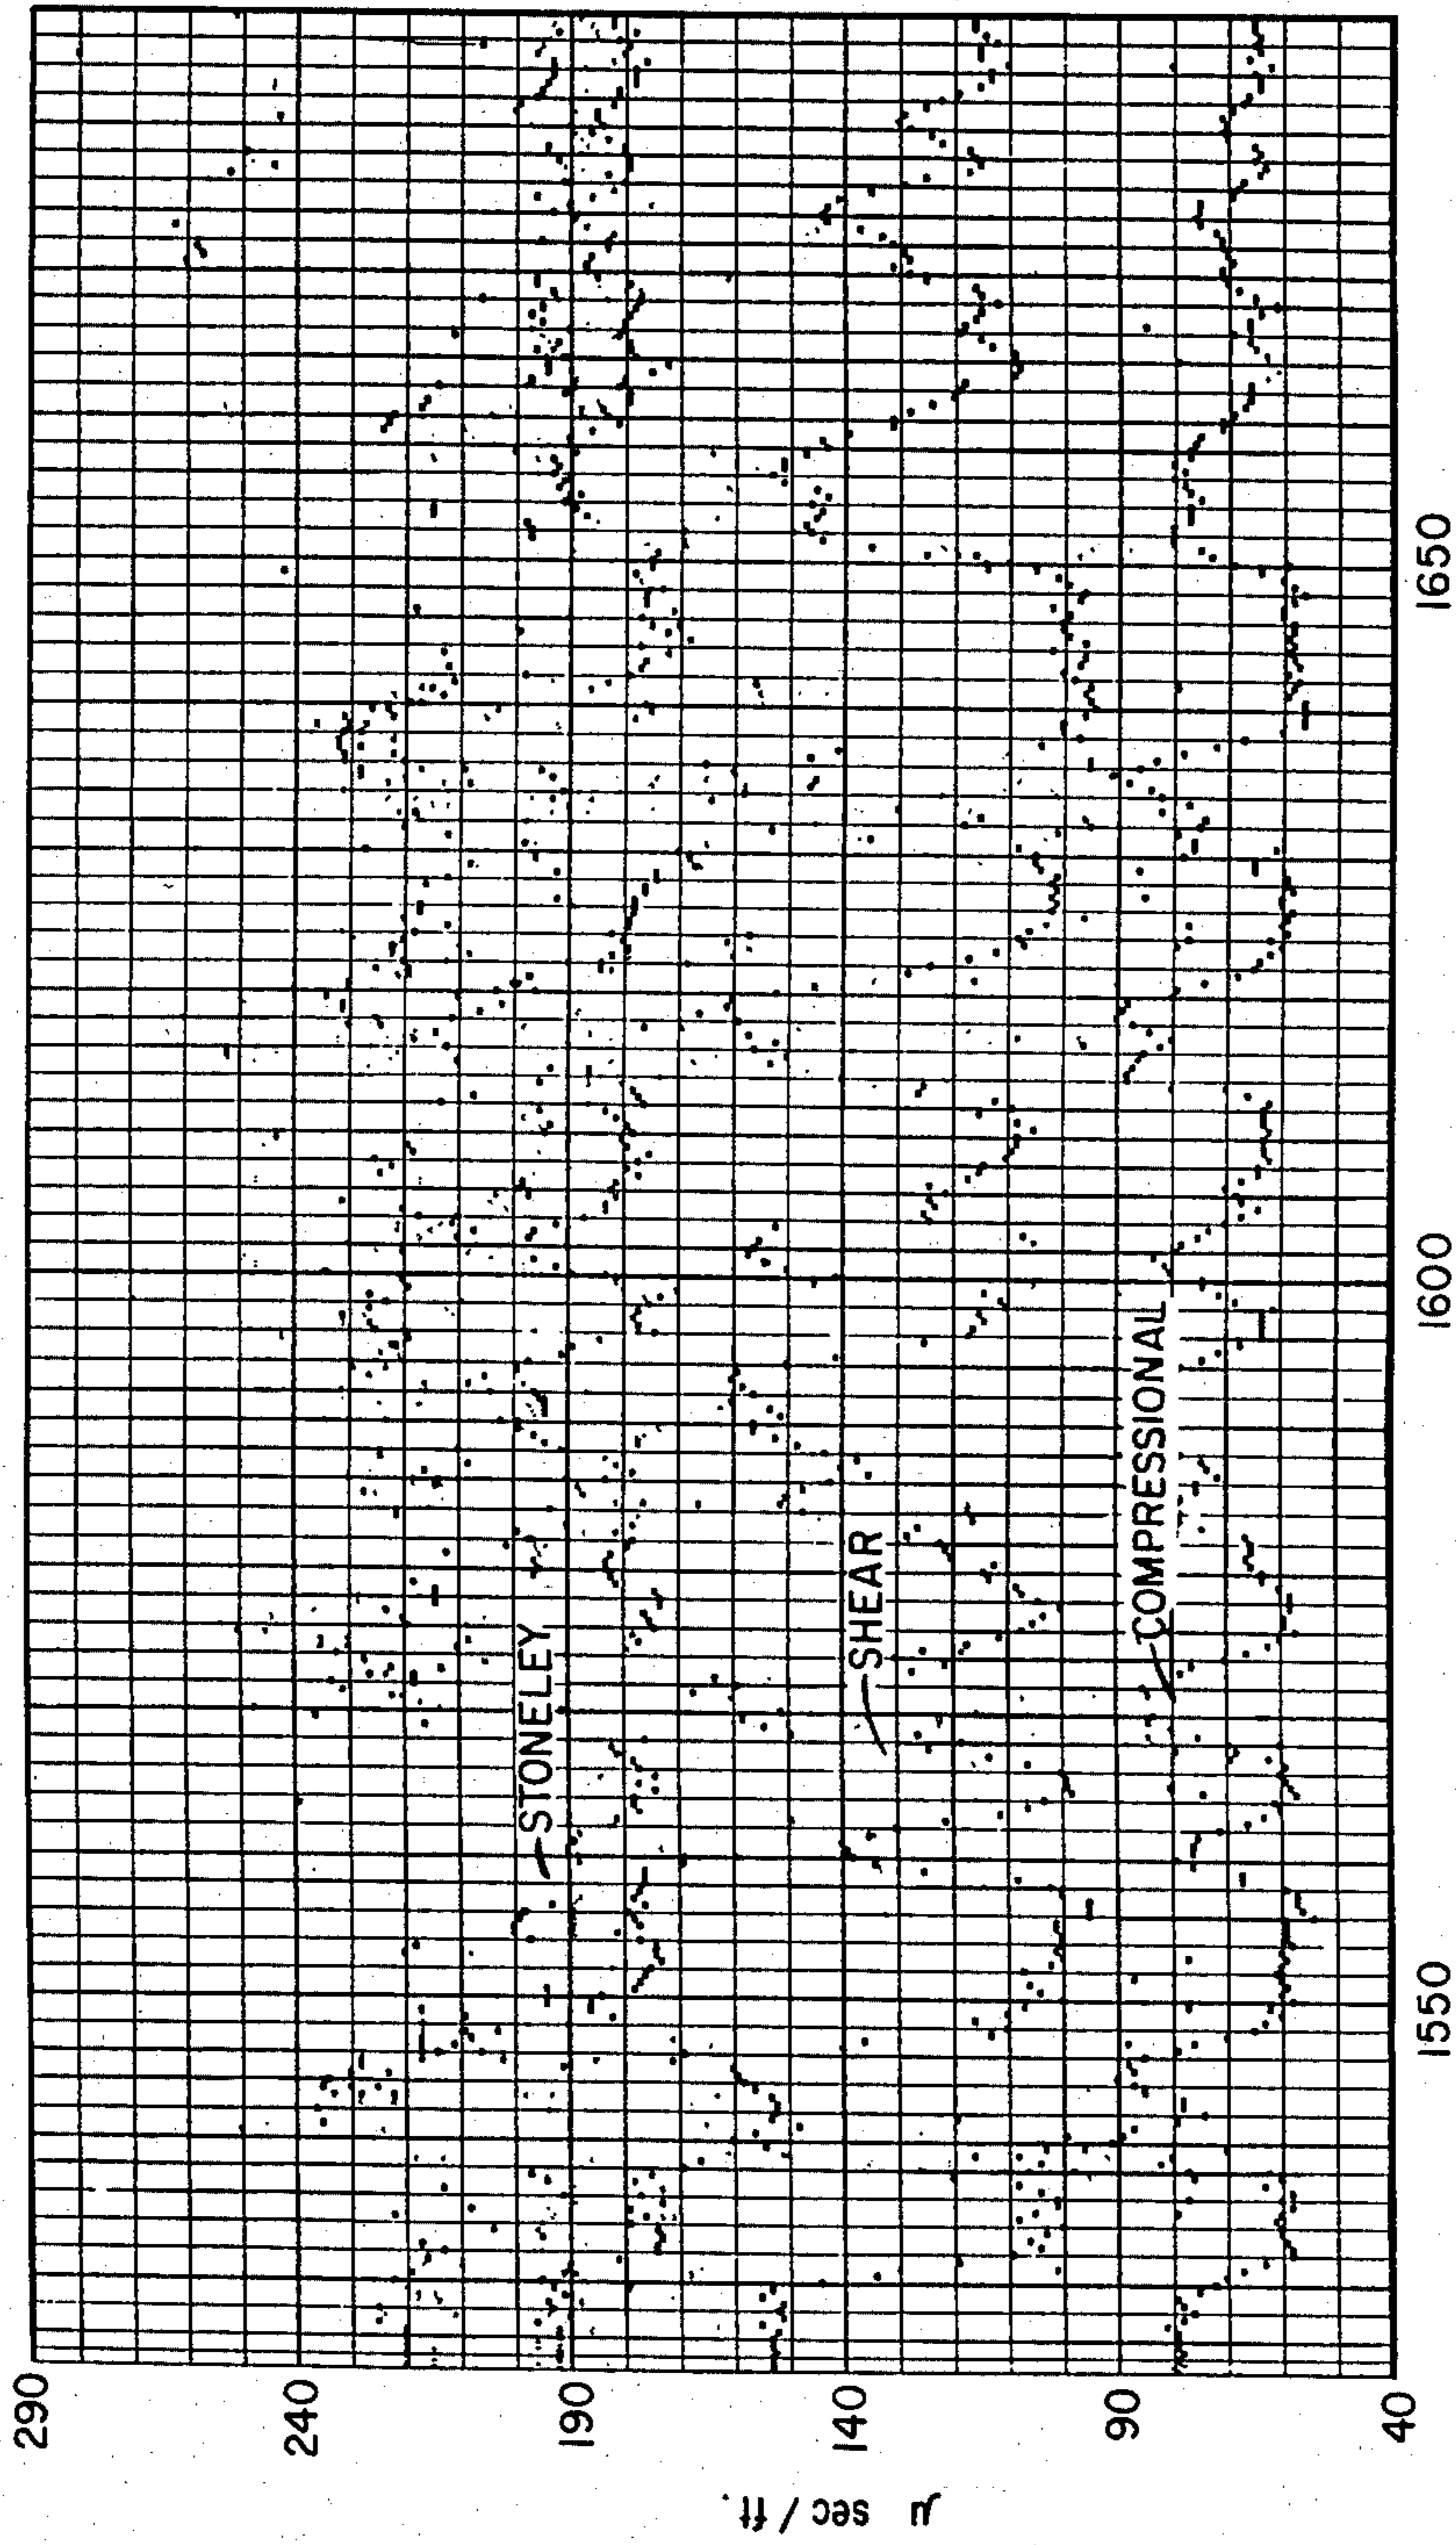 290
240
190
140
90
40
μ sec / ft.
STONELEY
SHEAR
COMPRESSIONAL
1550
1600
1650